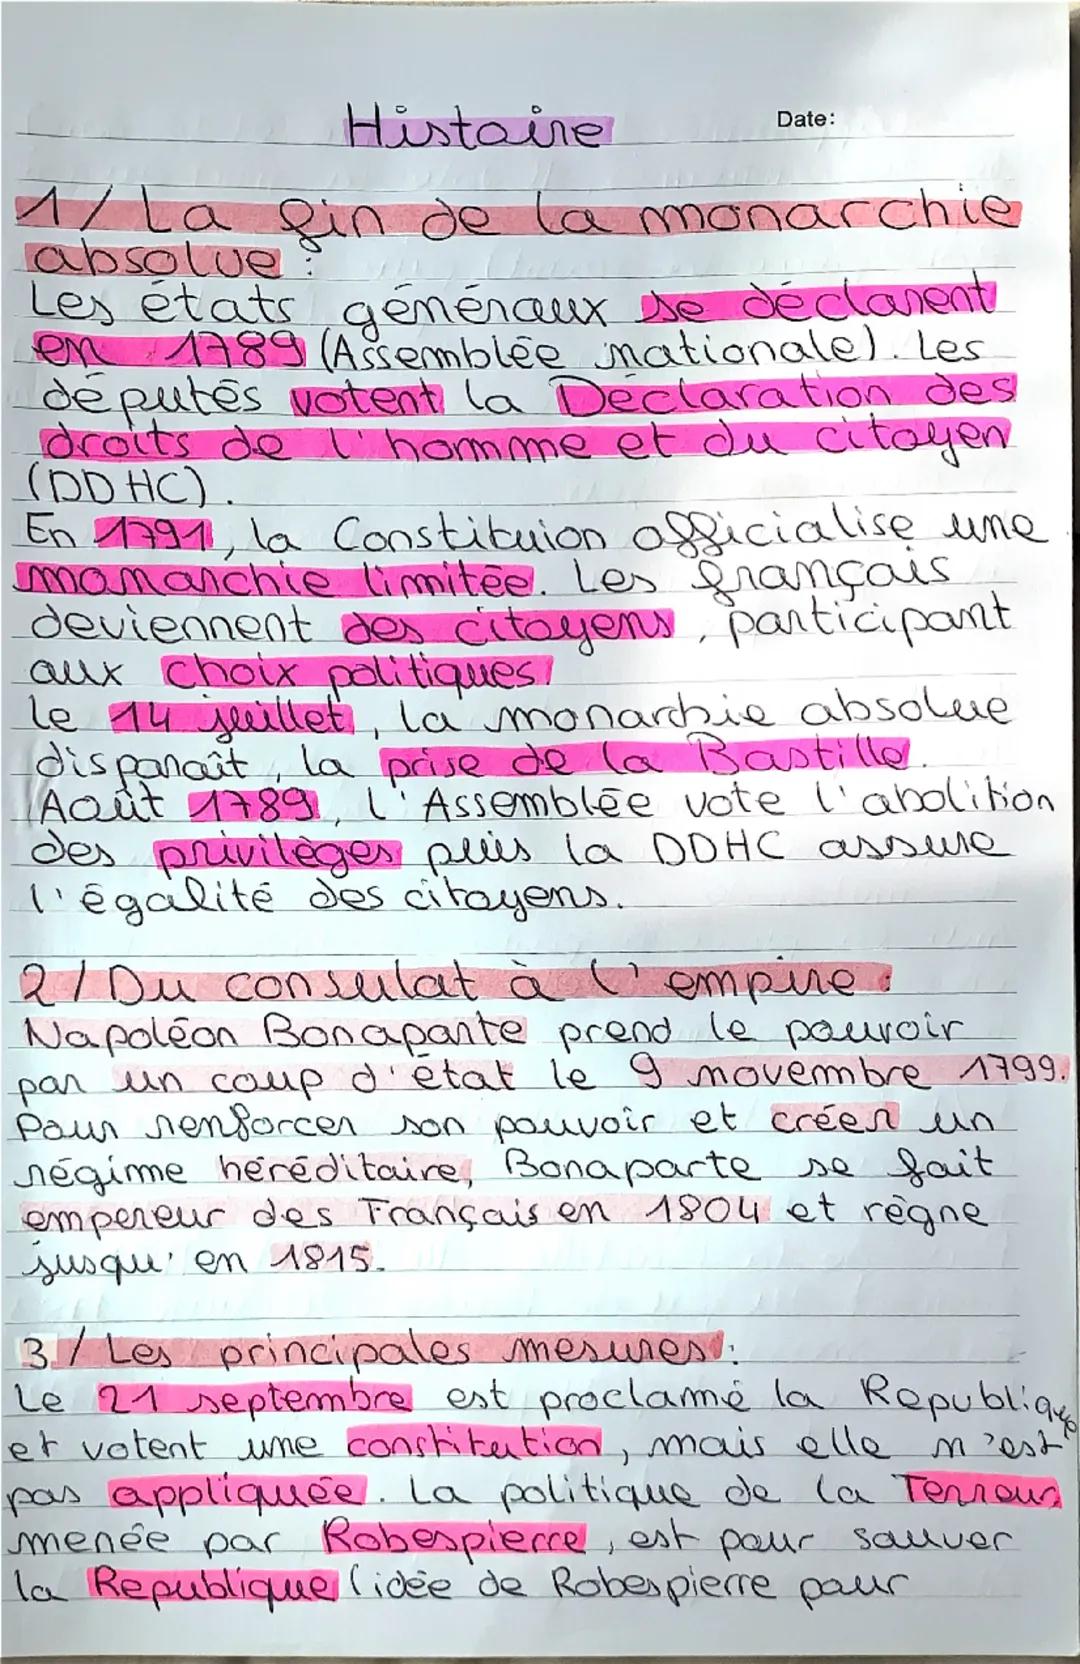 Histoire
Date:
1/ La fin de la monarchie
absolue :
Les états généraux se déclarent
en 1789 (Assemblée nationale). Les
députés votent la Déclaration des
droits de l'homme et du citoyen
(DDHC).
En 1791, la Constituion officialise une
monarchie limitée. Les français
deviennent des citoyens, participant
aux choix politiques.
Le 14 juillet, la monarchie absolue
disparaît, la prise de la Bastille.
Août 1789, l'Assemblée vote l'abolition
des privilèges puis la DDHC assure
l'égalité des citoyens.
2/ Du consulat à l'empire :
Napoléon Bonaparte prend le pouvoir
par un coup d'état le 9 novembre 1799.
Pour renforcer son pouvoir et créer un
régime héréditaire, Bonaparte se fait
empereur des Français en 1804 et règne
jusqu'en 1815.
3/ Les principales mesures :
Le 21 septembre est proclamé la Republique
et votent une constitution, mais elle n'est
pas appliquée. La politique de la Terreur
menée par Robespierre, est pour sauver
la Republique (idée de Robespierre pour